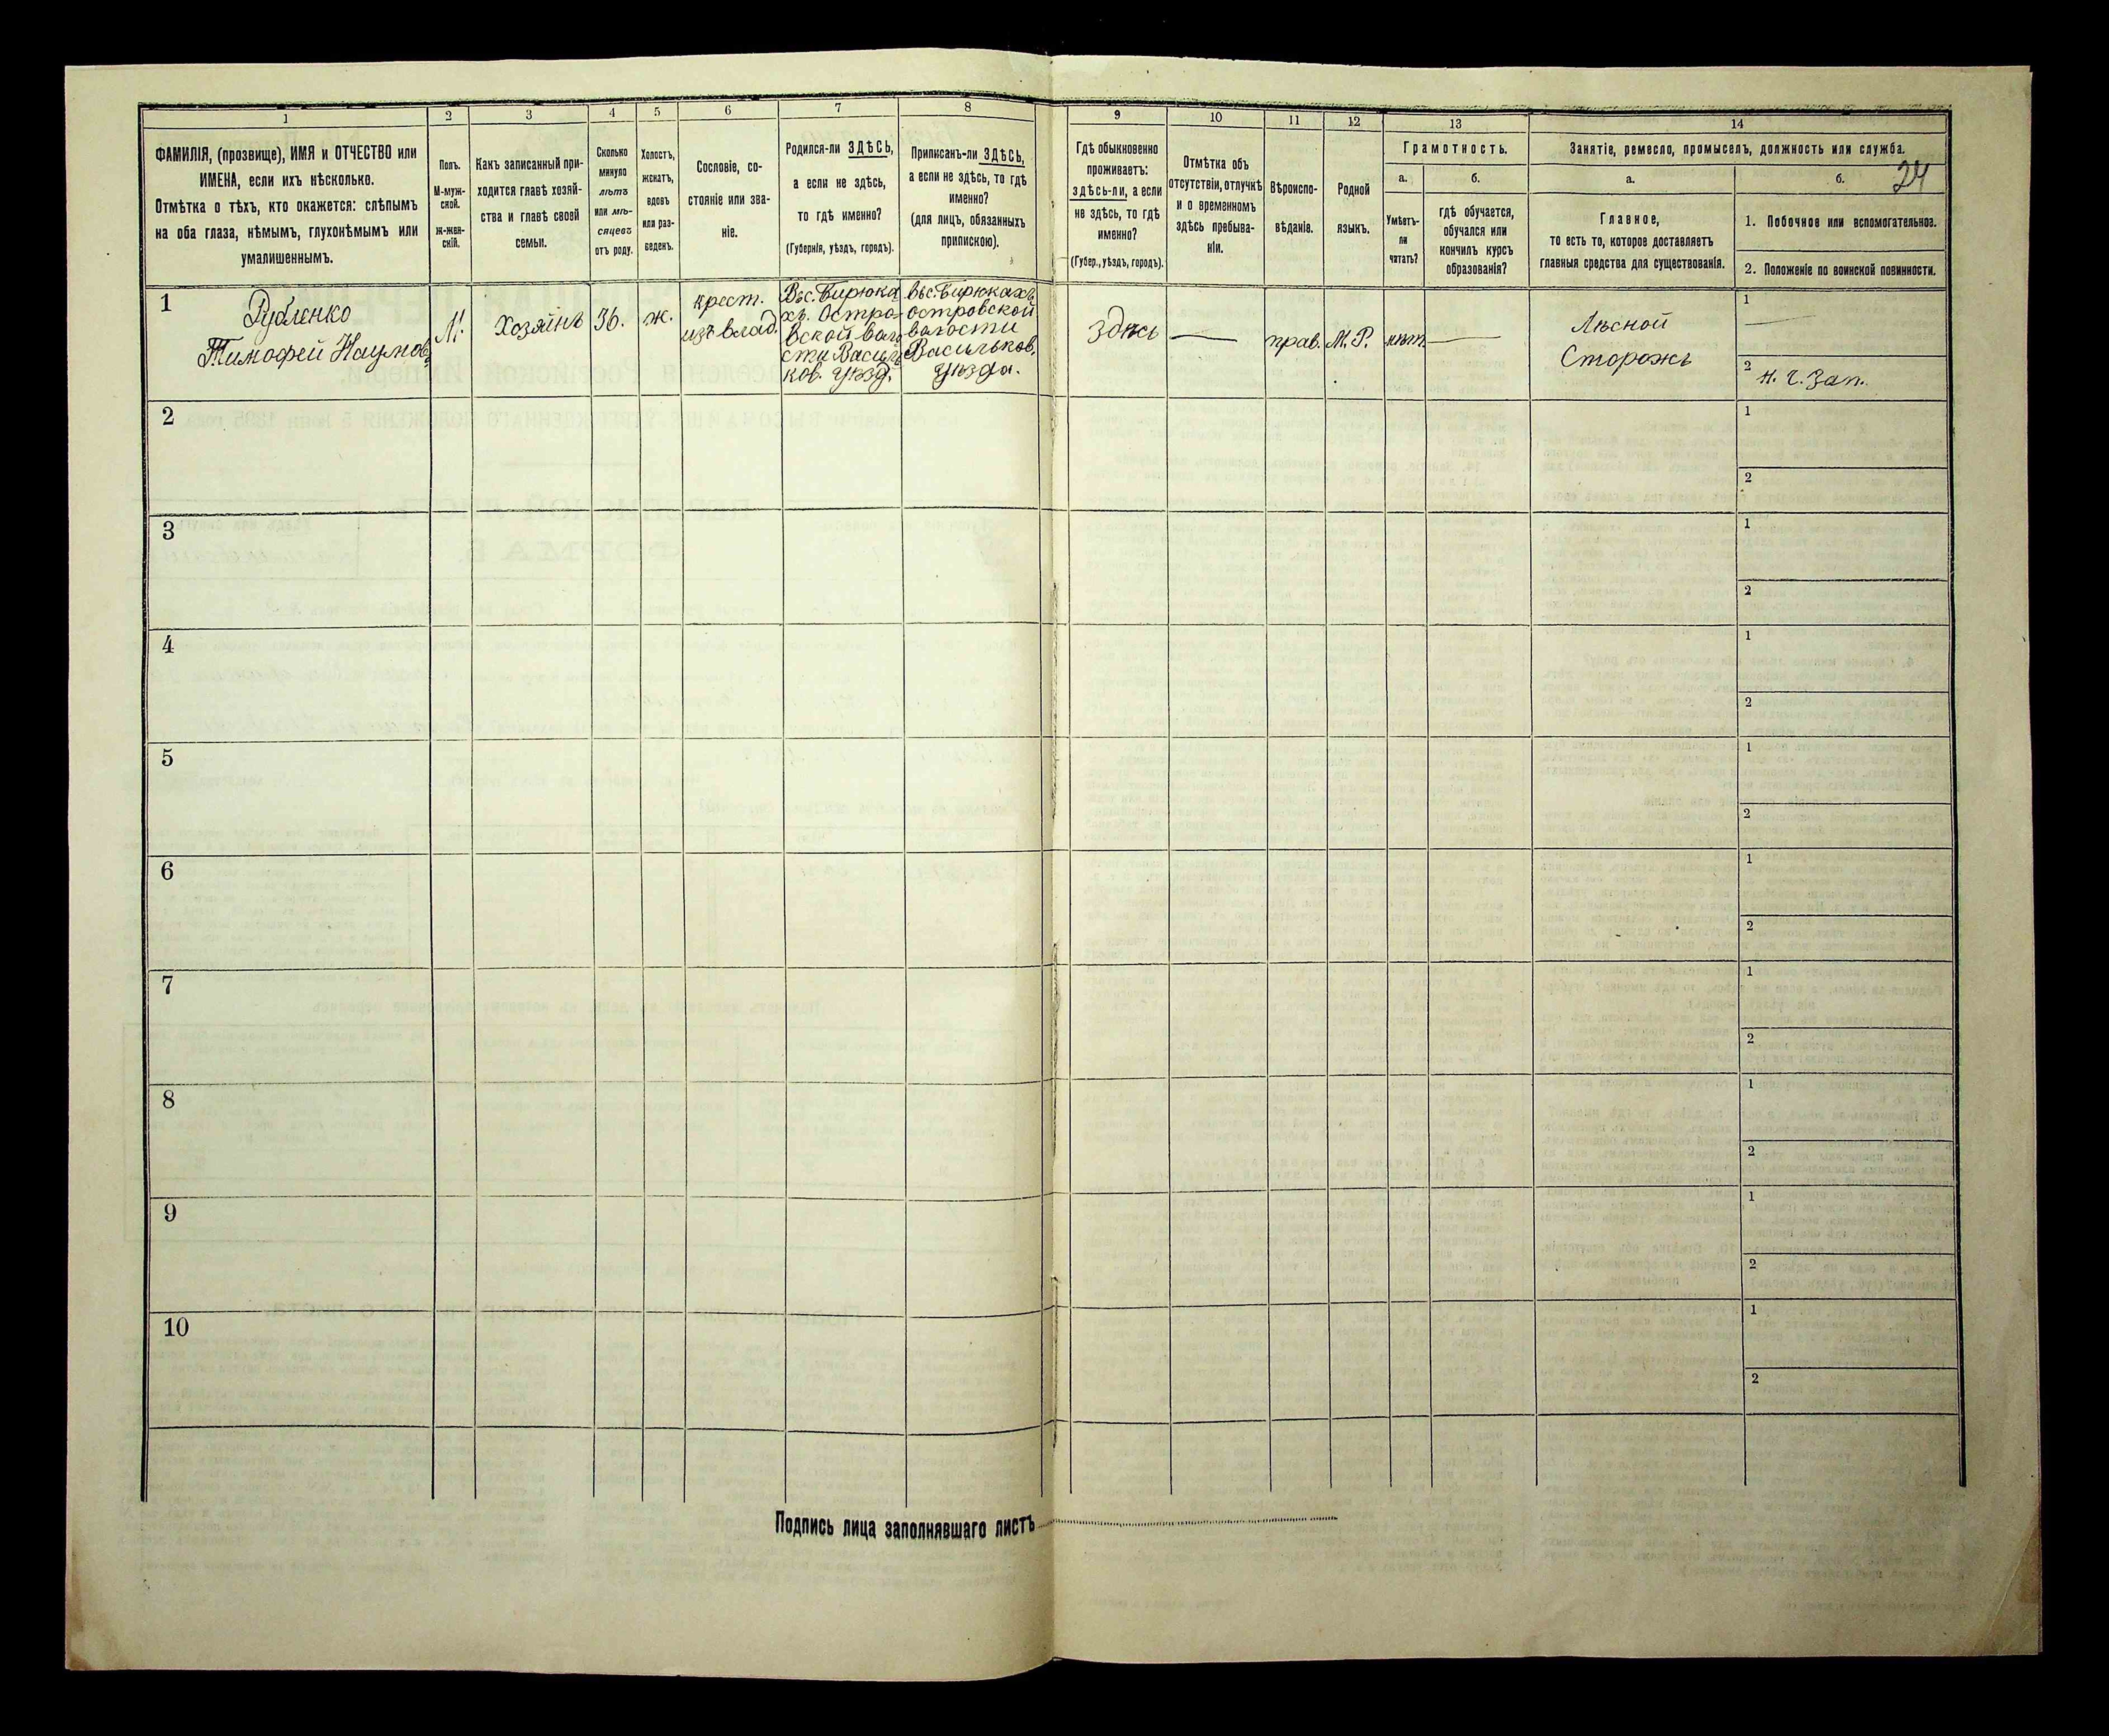 1
2
3
4
5
6
7
8
9
10
11
12
13
14
ФАМИЛІЯ, (прозвище), ИМЯ и ОТЧЕСТВО или
ИМЕНА, если ихъ нѣсколько.
Отмѣтка о тѣхъ, кто окажется: слѣпымъ
на оба глаза, нѣмымъ, глухонѣмымъ или
умалишеннымъ.
Полъ.
М-муж-
ской.
Ж-жен-
скій.
Какъ записанный при-
ходится главѣ хозяй-
ства и главѣ своей
семьи.
Сколько
минуло
лѣтъ
или мѣ-
сяцевъ
отъ роду.
Холостъ,
женатъ,
вдовъ
или раз-
веденъ.
Сословіе, со-
стояніе или зва-
ніе.
Родился-ли ЗДѢСЬ,
а если не здѣсь,
то гдѣ именно?
(Губернія, уѣздъ, городъ).
Приписанъ-ли ЗДѢСЬ,
а если не здѣсь, то гдѣ
именно?
(для лицъ, обязанныхъ
припискою).
Гдѣ обыкновенно
проживаетъ:
здѣсь-ли, а если
не здѣсь, то гдѣ
именно?
(Губер., уѣздъ, городъ).
Отмѣтка объ
отсутствіи, отлучкѣ
и о временномъ
здѣсь пребыва-
ніи.
Вѣроиспо-
вѣданіе.
Родной
языкъ.
Грамотность.
а.
Умѣетъ-
ли
читать?
б.
гдѣ обучается,
обучался или
кончилъ курсъ
образованія?
Занятіе, ремесло, промыселъ, должность или служба.
а.
Главное,
то есть то, которое доставляетъ
главныя средства для существованія.
б.
24
1. Побочное или вспомогательное.
2. Положеніе по воинской повинности.
1
Рубленко
Тимофей Наумов.
М.
Хозяинъ
36.
ж.
крест.
изъ влад.
Въ с. Бирюка
хъ. Остро-
вской воло
сти Василь
ков. уѣзд.
въ с. Бирюкахъ
островской
волости
Васильков.
уѣзда.
Здѣсь
—
прав.
М. Р.
нѣтъ
—
Лѣсной
Сторожъ
1
—
2
н. ч. Зап.
2
1
2
3
1
2
4
1
2
5
1
2
6
1
2
7
1
2
8
1
2
9
1
2
10
1
2
Подпись лица заполнявшаго листъ